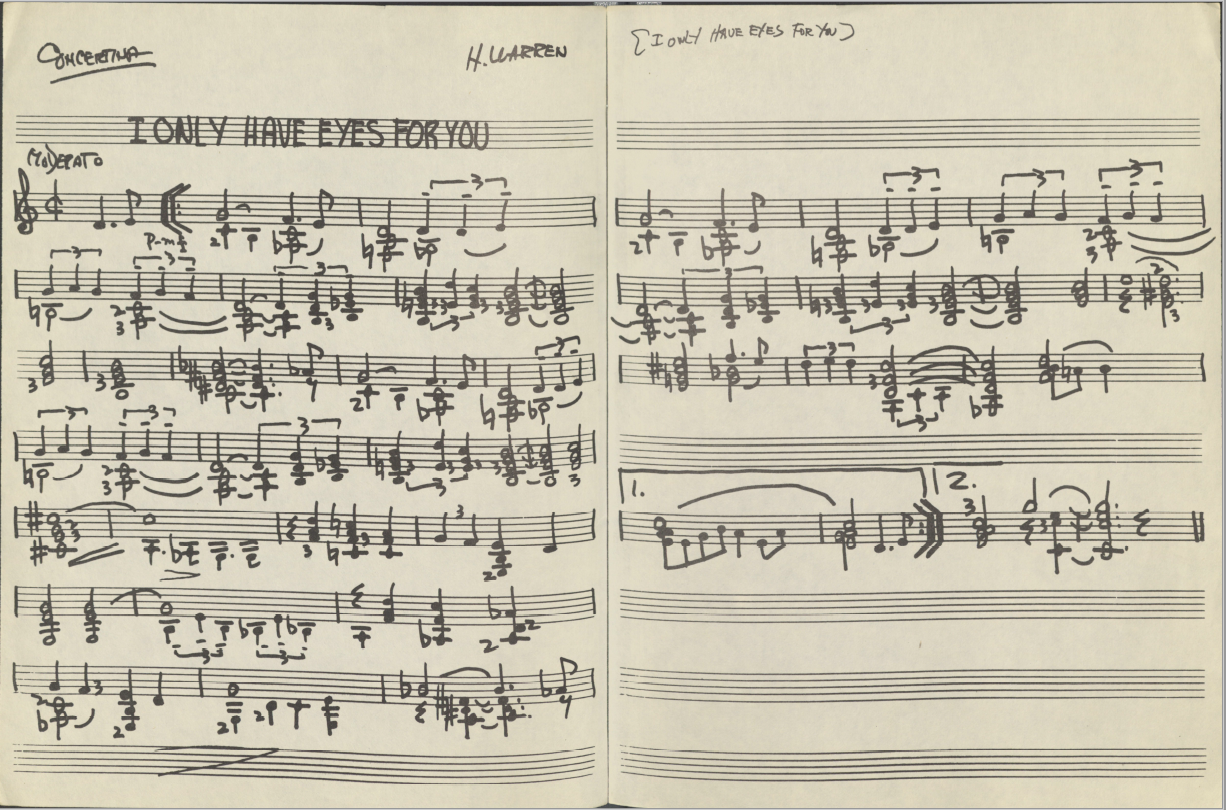 CONCERTINA
H. WARREN
I ONLY HAVE EYES FOR YOU
MODERATO
P-mf
(I ONLY HAVE EYES FOR YOU)
1.
2.